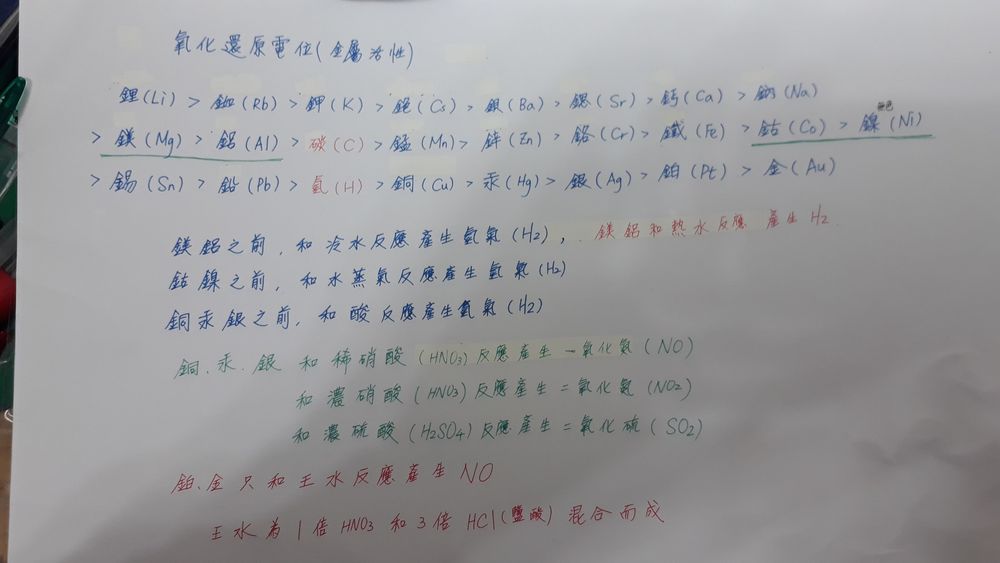 氧化還原電位(金屬活性)
鋰(Li) > 銣(Rb) > 鉀(K) > 銫(Cs) > 鋇(Ba) > 鍶(Sr) > 鈣(Ca) > 鈉(Na)
> 鎂(Mg) > 鋁(Al) > 碳(C) > 錳(Mn) > 鋅(Zn) > 鉻(Cr) > 鐵(Fe) > 鈷(Co) > 鎳(Ni)
> 錫(Sn) > 鉛(Pb) > 氫(H) > 銅(Cu) > 汞(Hg) > 銀(Ag) > 鉑(Pt) > 金(Au)
鎂鋁之前,和冷水反應產生氫氣(H2),鎂鋁和熱水反應產生H2
鈷鎳之前,和水蒸氣反應產生氫氣(H2)
銅汞銀之前,和酸反應產生氫氣(H2)
銅.汞.銀和稀硝酸(HNO3)反應產生一氧化氮(NO)
和濃硝酸(HNO3)反應產生二氧化氮(NO2)
和濃硫酸(H2SO4)反應產生二氧化硫(SO2)
鉑.金只和王水反應產生NO
王水為1倍HNO3和3倍HCl(鹽酸)混合而成